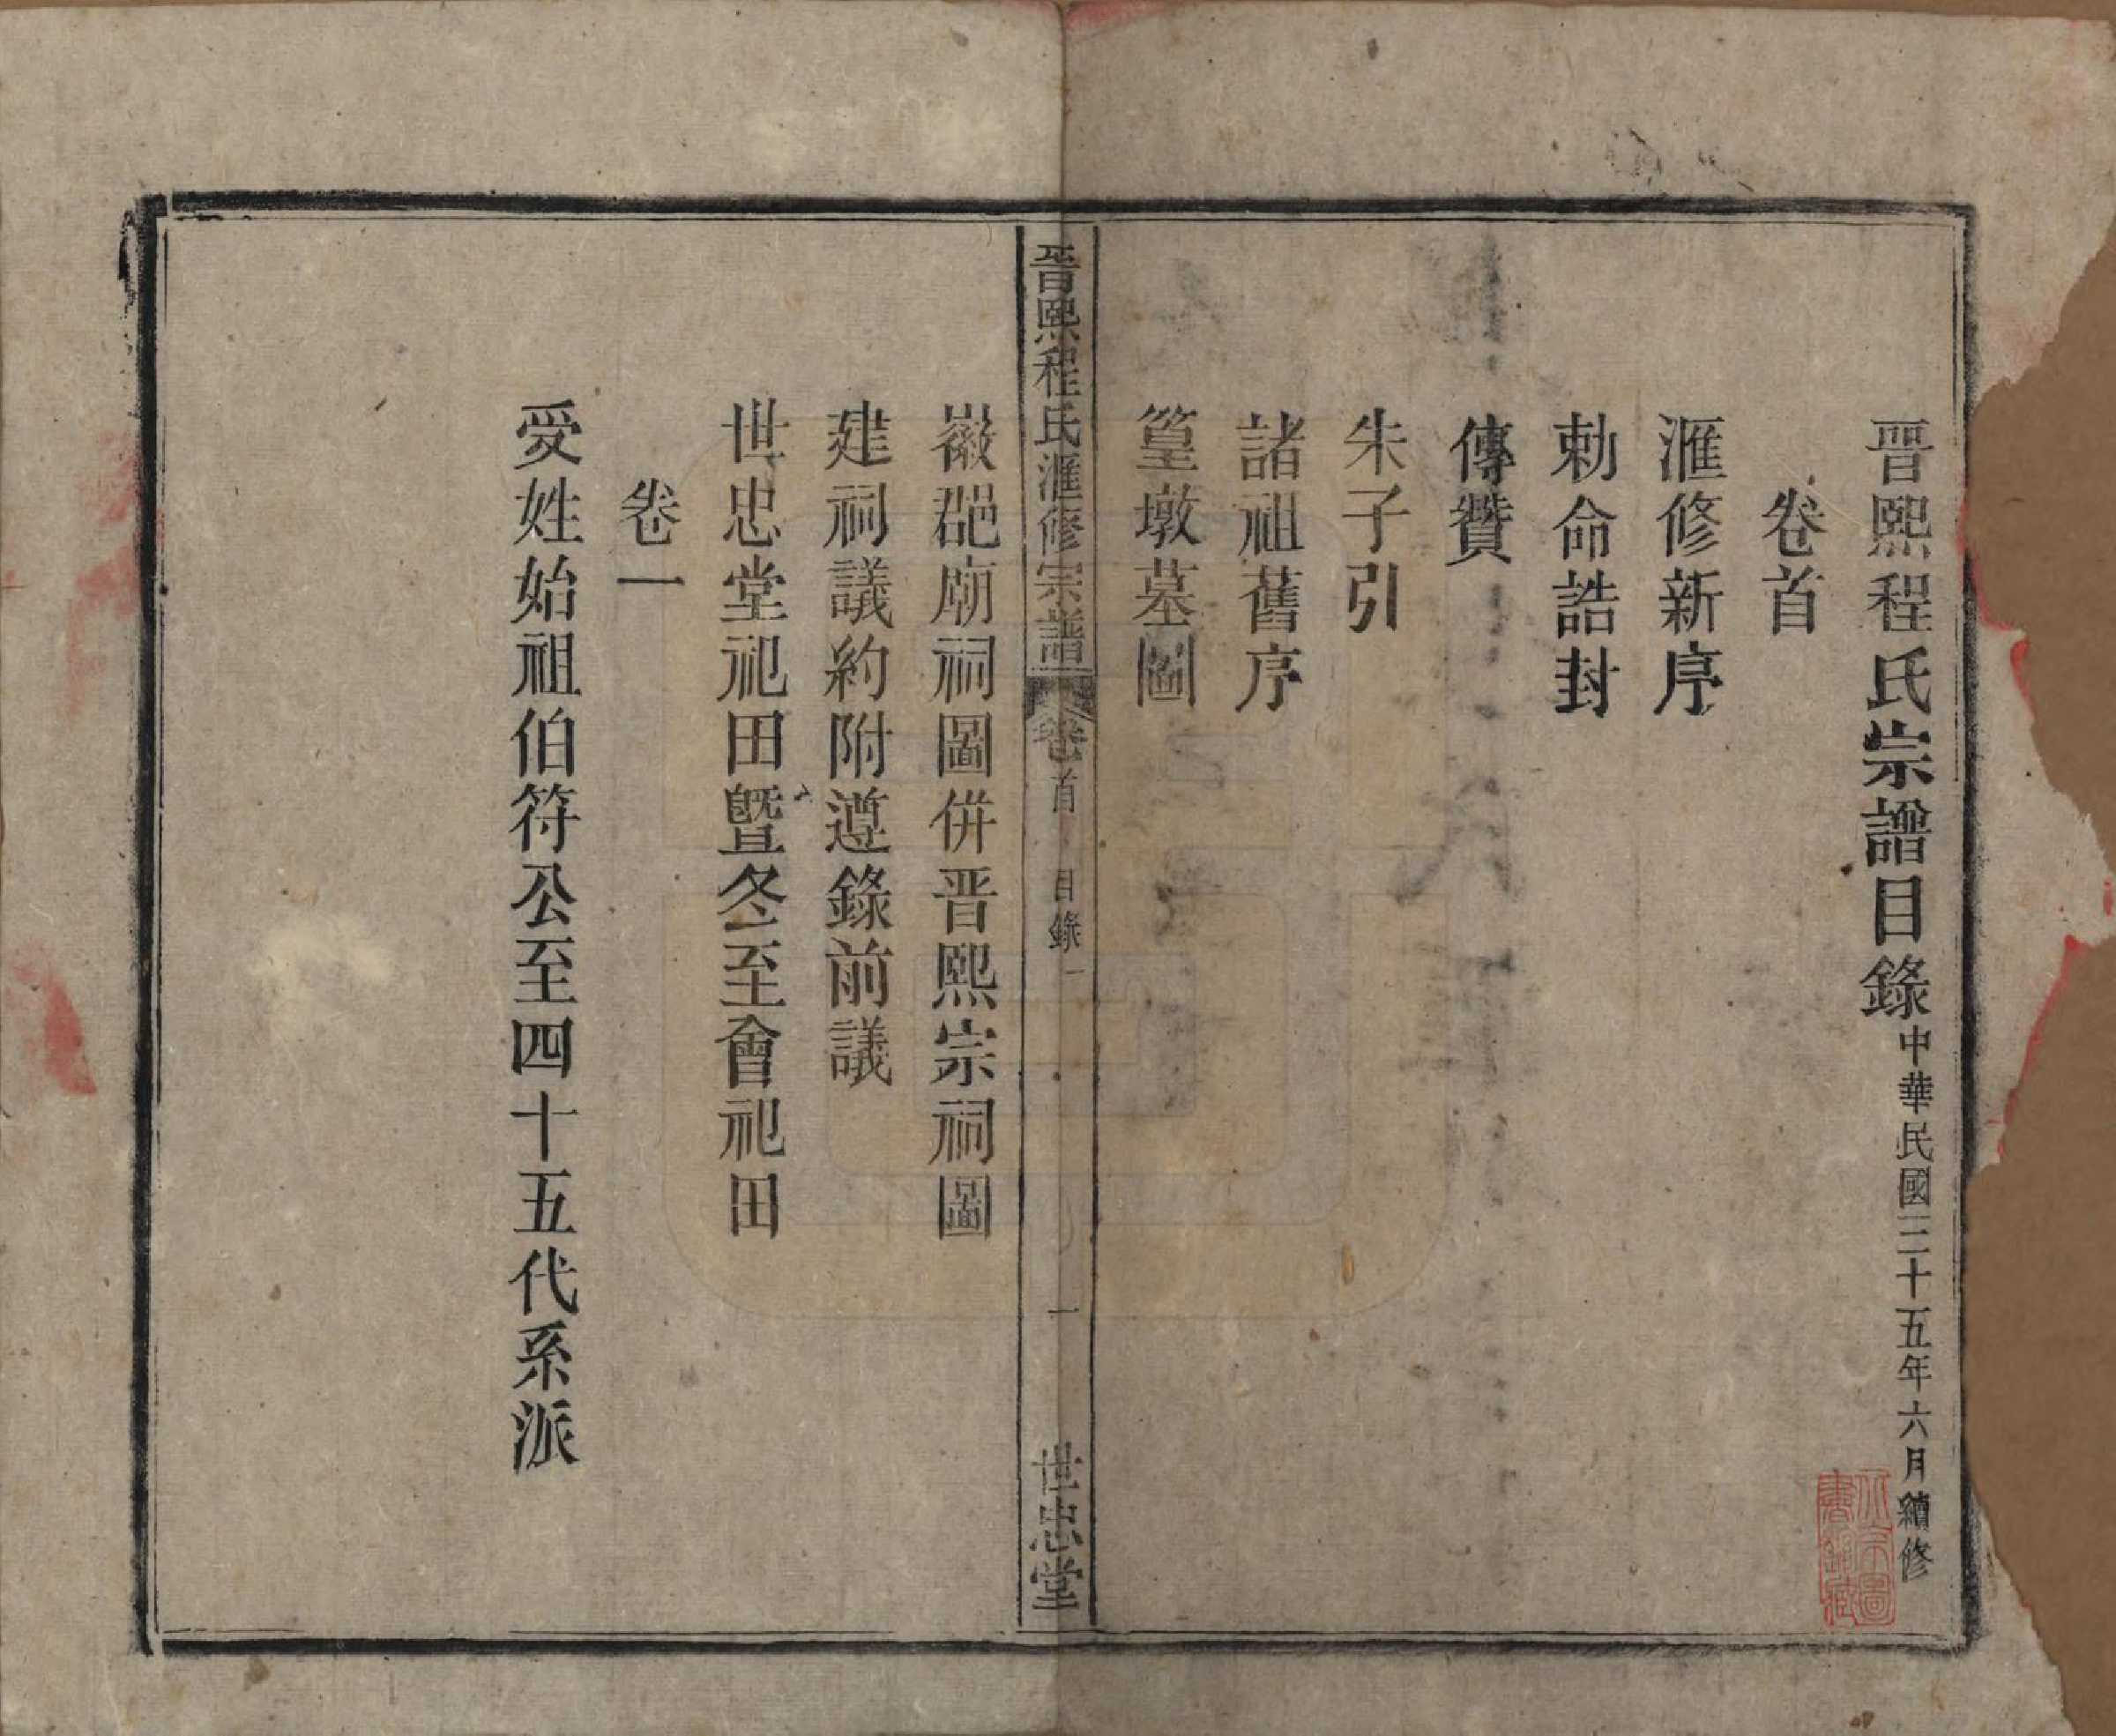 晋熙程氏宗譜目錄中華民國三十五年六月續修
卷首
滙修新序
勅命誥封
傳贊
朱子引
諸祖舊序
篁墩墓圖
晋熙程氏滙修宗譜 卷首 目錄一 一 世忠堂
徽郡廟祠圖併晋熙宗祠圖
建祠議約附遵錄前議
世忠堂祀田曁冬至會祀田
卷一
受姓始祖伯符公至四十五代系派